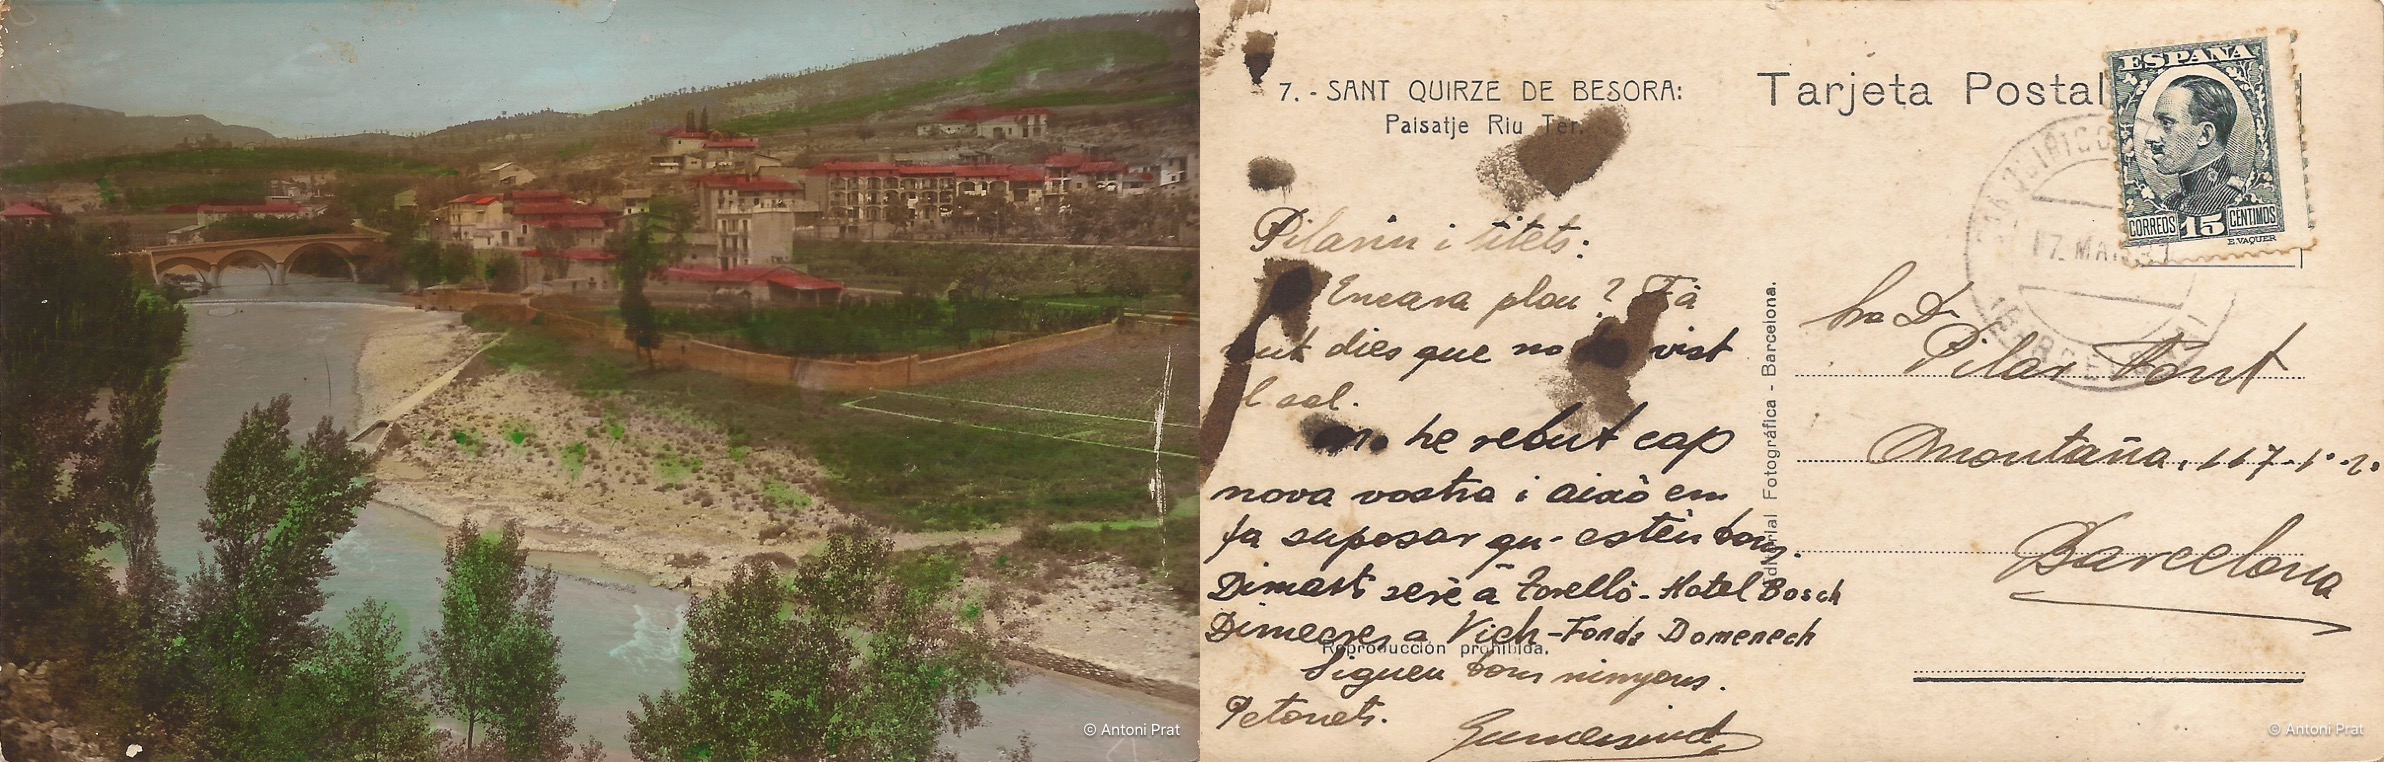 © Antoni Prat
7. - SANT QUIRZE DE BESORA:
Paisatje Riu Ter.
Tarjeta Postal
ESPAÑA
CORREOS 15 CENTIMOS
E. VAQUER
17 MAR 31
Pilarin i titets:
Encara plou? Fà
vuit dies que no vist
l sol.
he rebut cap
nova vostra i aixó em
fa suposar qu- estèu bons.
Dimarts seré a Torelló - Hotel Bosch
Dimecres a Vich - Fonda Domenech
Sigueu bons minyons.
Petonets.
Gumersind
Editorial Fotográfica - Barcelona.
Reproducción prohibida.
Sra Dª
Pilar Font
Montaña, 117-1º-2ª
Barcelona
© Antoni Prat